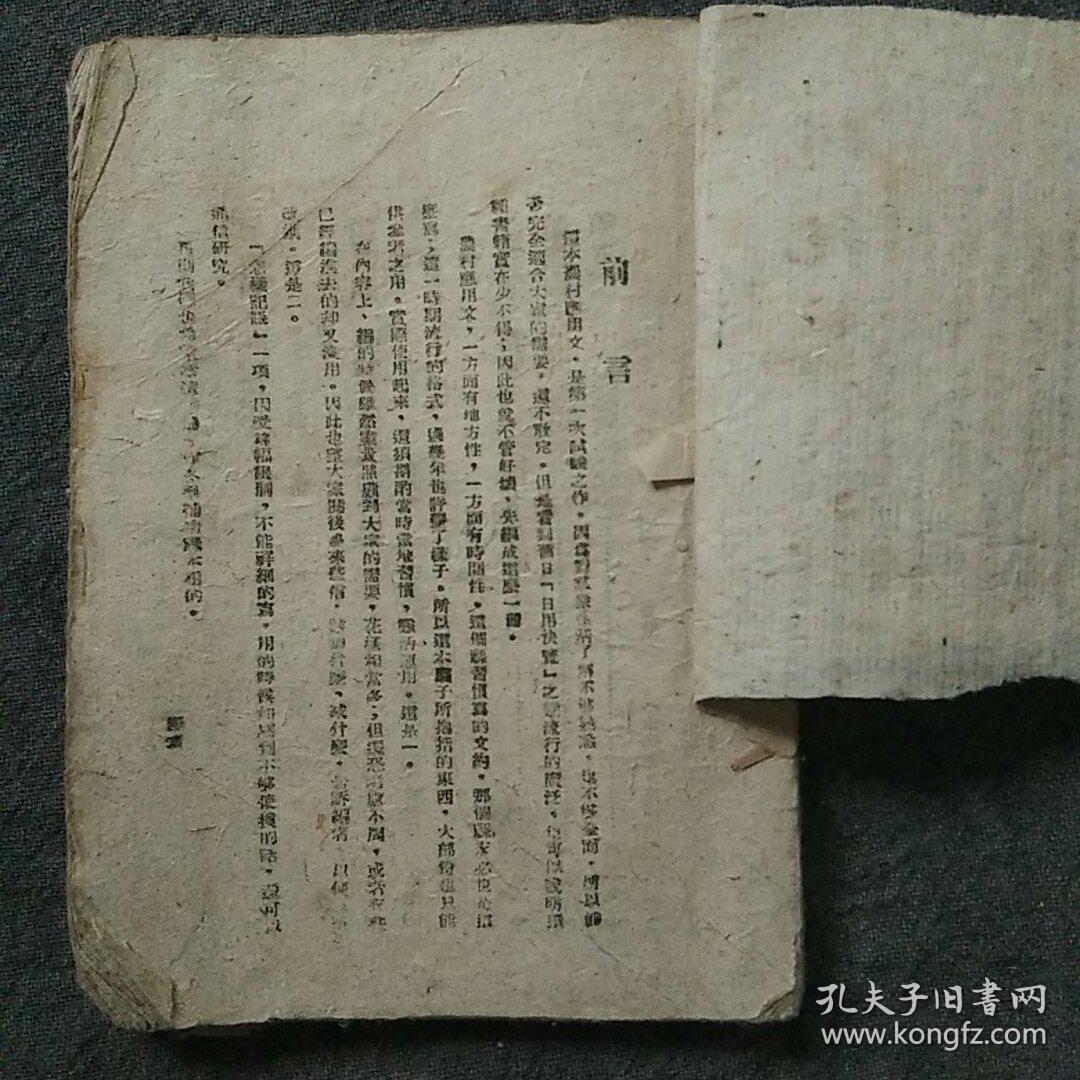 前言
這本農村應用文,是第一次試驗之作,因為對羣眾生活了解不夠,也不夠全面,所以能
否完全適合大家的需要,還不敢定。但是看到舊日「日用快覽」之類流行的廣泛,也可以說明這
類書籍實在少不得;因此也就不管好壞,先編成這麼一冊。
農村應用文,一方面有地方性,一方面有時間性。這個縣習慣寫的文約,那個縣未必也是這
麼寫;這一時期流行的格式,過幾年也許變了樣子。所以這本冊子所抱括的東西,大部份也只能
供參考之用。實際使用起來,還須斟酌當時當地習慣,靈活運用。這是一。
在內容上,編的時候雖然盡量照顧到大家的需要,花樣相當多;但還恐考慮不周,或者有些
已經編進去的却又沒用。因此也望大家閱後多來些信,增加什麼、減什麼,告訴編者,以便
改進。這是二。
「怎樣記賬」一項,因受篇幅限制,不能詳細的寫,用的時候如感到不够使換的話,還可以
通信研究。
編者
孔夫子旧書网
www.kongfz.com